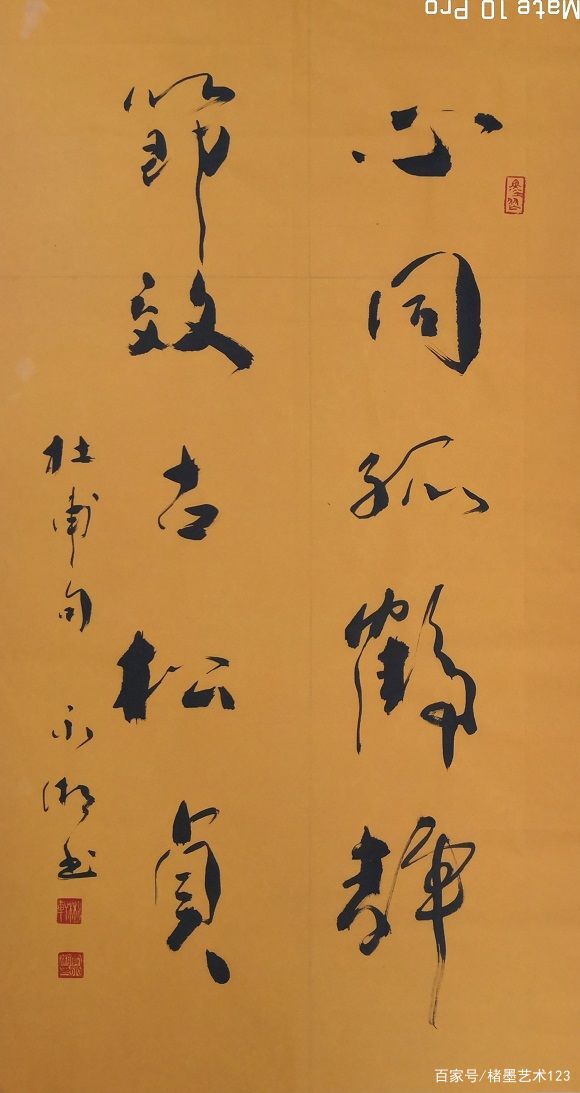 心同孤鹤静
節效古松貞
杜甫句 永湘书
Mate 10 Pro
百家号/楮墨艺术123